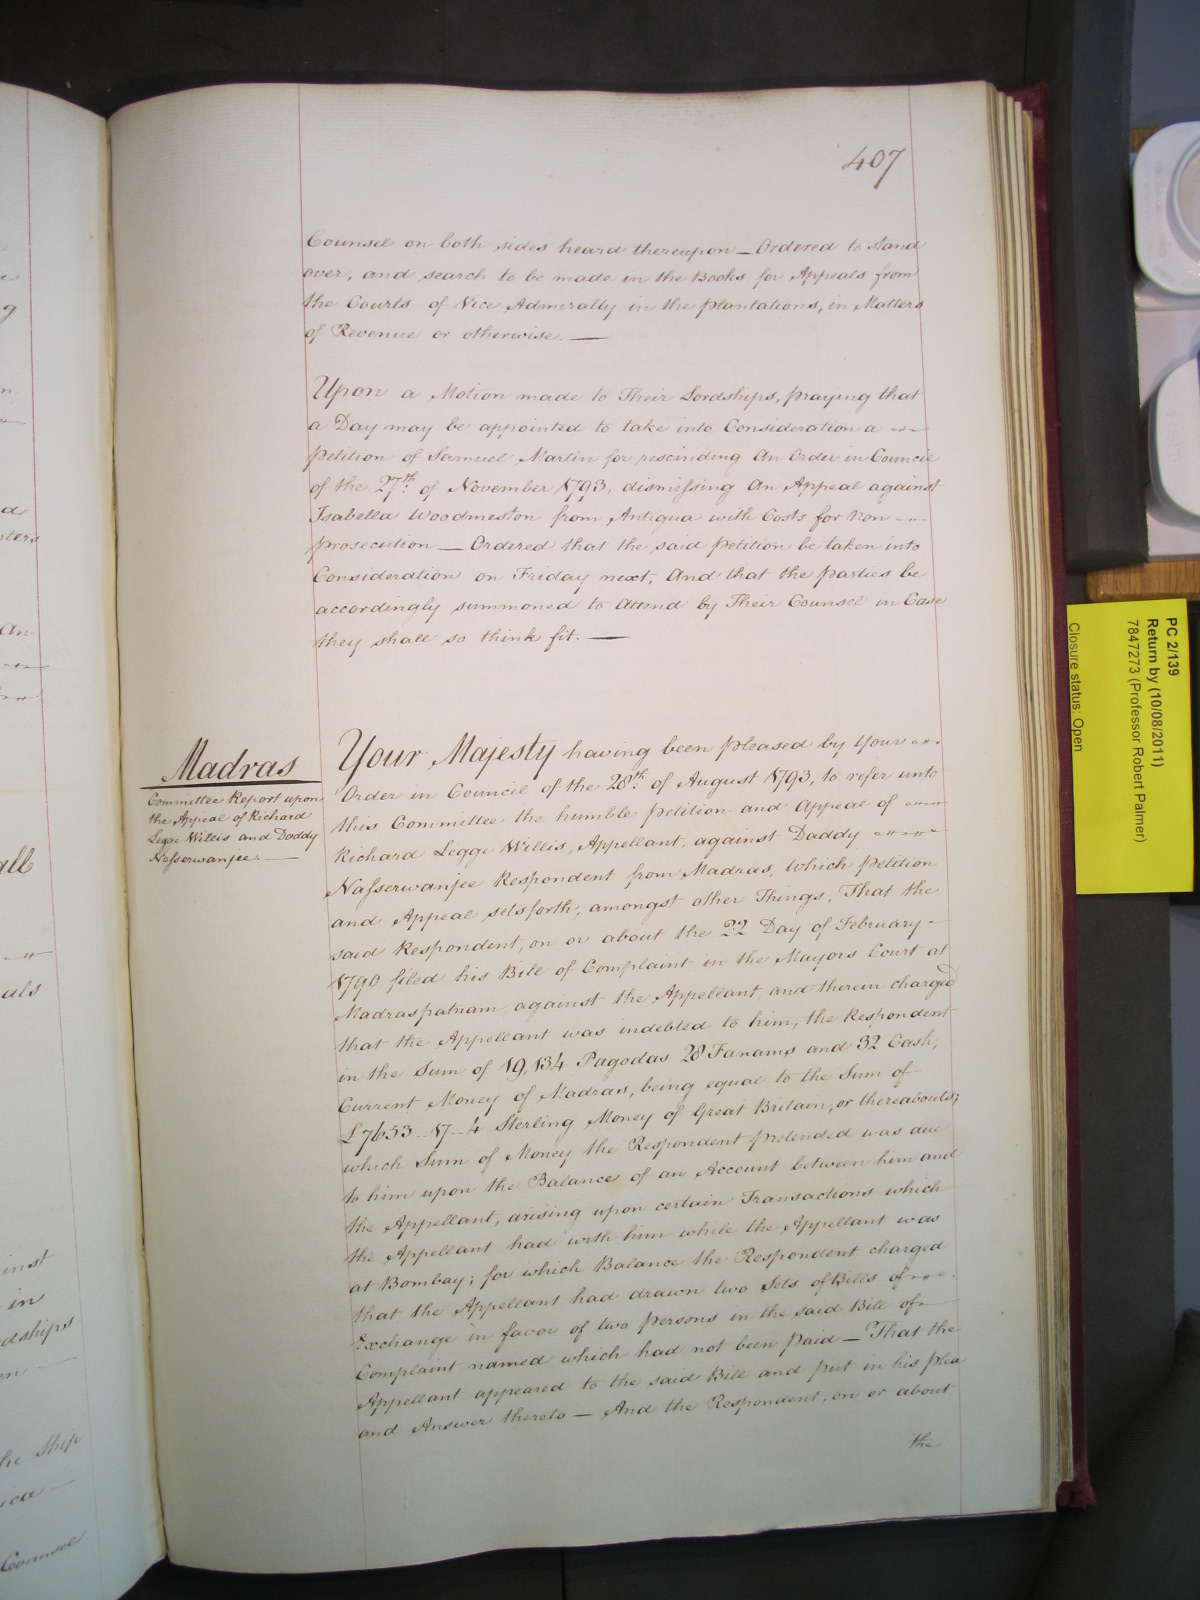 407
Counsel on both sides heard thereupon — Ordered to stand
over, and search to be made in the Books for Appeals from
the Courts of Vice Admiralty in the plantations, in Matters
of Revenue or otherwise. —
Upon a Motion made to Their Lordships, praying that
a Day may be appointed to take into Consideration a
Petition of Samuel Martin for rescinding An Order in Council
of the 27th of November 1793, dismissing An Appeal against
Isabella Woodmeston from Antigua with Costs for Non
prosecution — Ordered that the said Petition be taken into
Consideration on Friday next, And that the Parties be
accordingly summoned to Attend by Their Counsel in Case
they shall so think fit. —
Madras
Committee Report upon
the Appeal of Richard
Legge Willis and Daddy
Nasserwanjee. —
Your Majesty having been pleased by Your
Order in Council of the 28th of August 1793, to refer unto
this Committee the humble Petition and Appeal of
Richard Legge Willis, Appellant, against Daddy
Nasserwanjee Respondent from Madras, Which Petition
and Appeal setsforth, amongst other Things, That the
said Respondent, on or about the 22 Day of February
1790 filed his Bill of Complaint in the Mayors Court at
Madraspatnam, against the Appellant, and therein charged
that the Appellant was indebted to him, the Respondent
in the Sum of 19,134 Pagodas 28 Fanams and 32 Cash,
Current Money of Madras, being equal to the Sum of
£7653 - 17 - 4 Sterling Money of Great Britain, or thereabouts;
which Sum of Money the Respondent pretended was due
to him upon the Balance of an Account between him and
the Appellant, arising upon certain Transactions which
the Appellant had with him while the Appellant was
at Bombay; for which Balance the Respondent charged
that the Appellant had drawn two Sets of Bills of
Exchange in favor of two Persons in the said Bill of
Complaint named which had not been Paid — That the
Appellant appeared to the said Bill and put in his Plea
and Answer thereto — And the Respondent, on or about
the
PC 2/139
Return by (10/08/2011)
7847273 (Professor Robert Palmer)
Closure status: Open